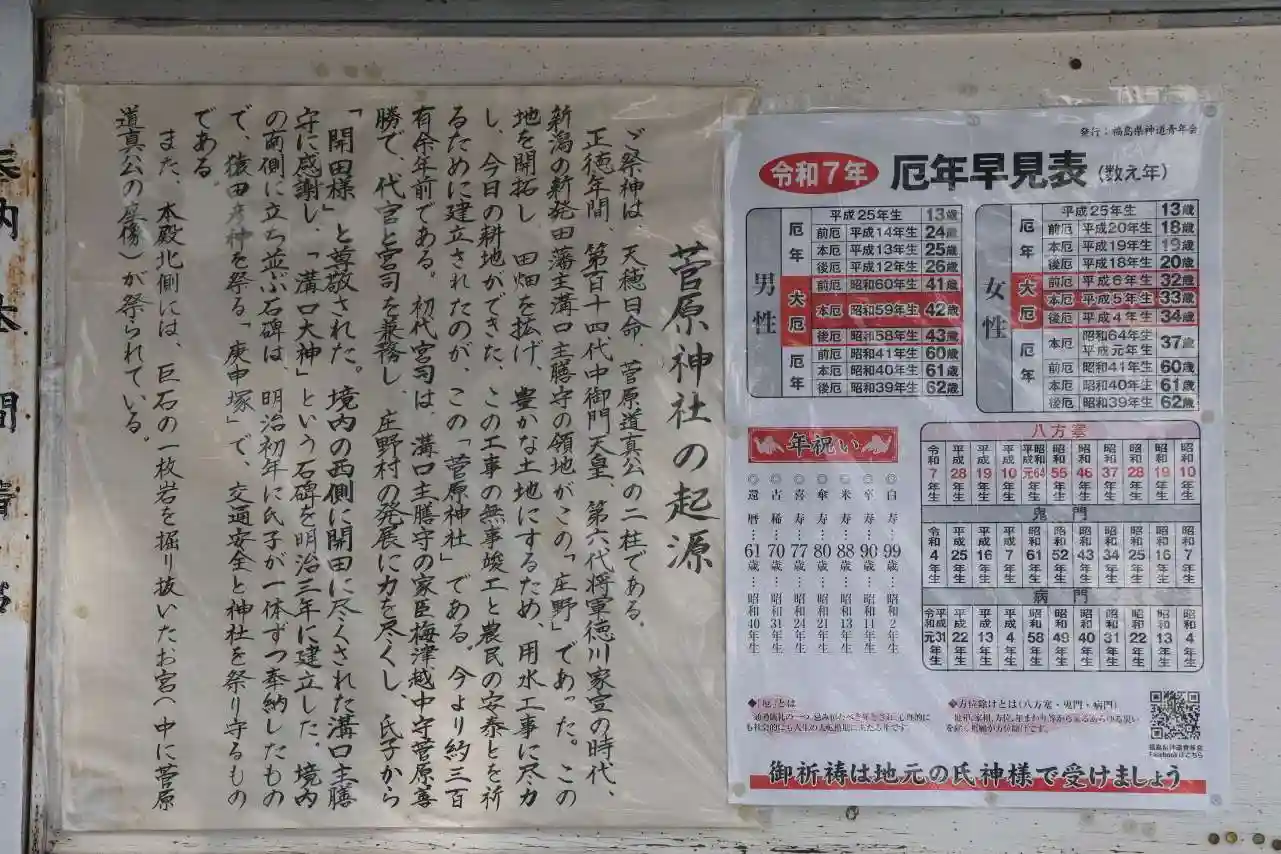 菅原神社の起源
ご祭神は、天穂日命、菅原道真公の二柱である。
正徳年間、第百十四代中御門天皇、第六代将軍徳川家宣の時代、
新潟の新発田藩主溝口主膳守の領地がこの「庄野」であった。この
地を開拓し、田畑を拡げ、豊かな土地にするため、用水工事に尽力
し、今日の耕地ができた、この工事の無事竣工と農民の安泰とを祈
るために建立されたのが、この「菅原神社」である。今より約三百
有余年前である。初代宮司は、溝口主膳守の家臣梅津越中守菅原喜
勝で、代官と宮司を兼務し、庄野村の発展に力を尽くし、氏子から
「開田様」と尊敬された。境内の西側に開田に尽くされた溝口主膳
守に感謝し、「溝口大神」という石碑を明治三年に建立した、境内
の南側に立ち並ぶ石碑は、明治初年に氏子が一体ずつ奉納したもの
で、猿田彦神を祭る「庚申塚」で、交通安全と神社を祭り守るもの
である。
また、本殿北側には、巨石の一枚岩を掘り抜いたお宮へ中に菅原
道真公の座像）が祭られている。
発行：福島県神道青年会
令和7年 厄年早見表（数え年）
男性
厄年
平成25年生 13歳
前厄 平成14年生 24歳
本厄 平成13年生 25歳
後厄 平成12年生 26歳
大厄
前厄 昭和60年生 41歳
本厄 昭和59年生 42歳
後厄 昭和58年生 43歳
厄年
前厄 昭和41年生 60歳
本厄 昭和40年生 61歳
後厄 昭和39年生 62歳
女性
厄年
平成25年生 13歳
前厄 平成20年生 18歳
本厄 平成19年生 19歳
後厄 平成18年生 20歳
大厄
前厄 平成6年生 32歳
本厄 平成5年生 33歳
後厄 平成4年生 34歳
厄年
本厄 昭和64年生 平成元年生 37歳
前厄 昭和41年生 60歳
本厄 昭和40年生 61歳
後厄 昭和39年生 62歳
年祝い
◎白寿…99歳…昭和2年生
◎卒寿…90歳…昭和11年生
◎米寿…88歳…昭和13年生
◎傘寿…80歳…昭和21年生
◎喜寿…77歳…昭和24年生
◎古稀…70歳…昭和31年生
◎還暦…61歳…昭和40年生
八方塞
昭和10年生
昭和19年生
昭和28年生
昭和37年生
昭和46年生
昭和55年生
昭和64 平成元年生
平成10年生
平成19年生
平成28年生
令和7年生
鬼門
昭和7年生
昭和16年生
昭和25年生
昭和34年生
昭和43年生
昭和52年生
昭和61年生
平成7年生
平成16年生
平成25年生
令和4年生
病門
昭和4年生
昭和13年生
昭和22年生
昭和31年生
昭和40年生
昭和49年生
昭和58年生
平成4年生
平成13年生
平成22年生
平成31 令和元年生
◆「厄」とは
◆方位除けとは（八方塞・鬼門・病門）
福島県神道青年会
Facebookはこちら
御祈祷は地元の氏神様で受けましょう
納
本
間